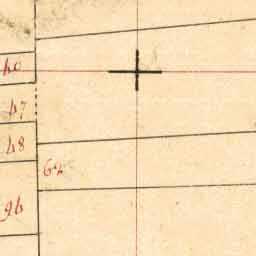 40
47
48
62
96